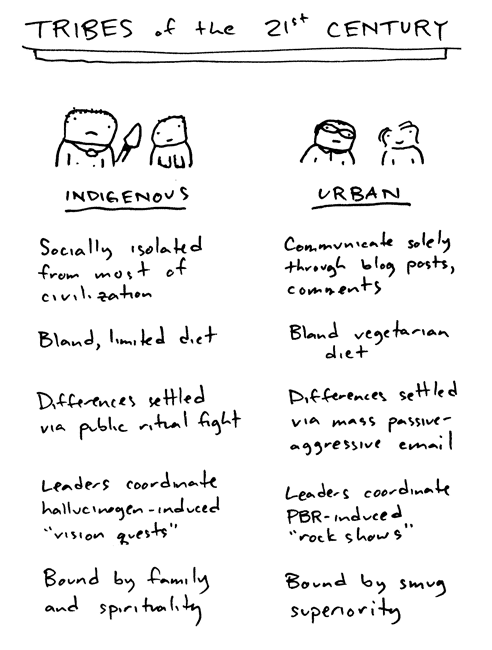 TRIBES of the 21st CENTURY
INDIGENOUS
Socially isolated
from most of
civilization
Bland, limited diet
Differences settled
via public ritual fight
Leaders coordinate
hallucinogen-induced
"vision quests"
Bound by family
and spirituality
URBAN
Communicate solely
through blog posts,
comments
Bland vegetarian
diet
Differences settled
via mass passive-
aggressive email
Leaders coordinate
PBR-induced
"rock shows"
Bound by smug
superiority